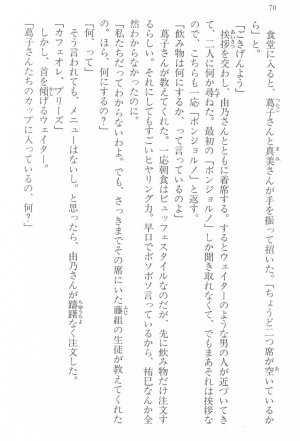 70
食堂に入ると、蔦子さんと真美さんが手を振って招いた。「ちょうど二つ席が空いているか
ら」と。
「ごきげんよう」
挨拶を交わし、由乃さんとともに着席する。するとウェイターのような男の人が近づいてき
て、二人に何か尋ねた。最初の「ボンジョルノ」しか聞き取れなくて、でもまあそれは挨拶な
ので、こちらも一応「ボンジョルノ」と返す。
「飲み物は何にするか、って言っているのよ」
蔦子さんが教えてくれた。一応朝食はビュッフェスタイルなのだが、先に飲み物だけ注文す
るらしい。それにしてもすごいヒヤリング力。早口でボソボソ言っているから、祐巳なんか全
然わからなかったのに。
「私たちだってわからないわよ。でも、さっきまでその席にいた藤組の生徒が教えてくれた
の。ほら、何にするの？」
「何、って」
そう言われても、メニューはないし。と思ったら、由乃さんが躊躇なく注文した。
「カフェオレ、プリーズ」
しかし、首を傾げるウェイター。
「蔦子さんたちのカップに入っているの、何？」